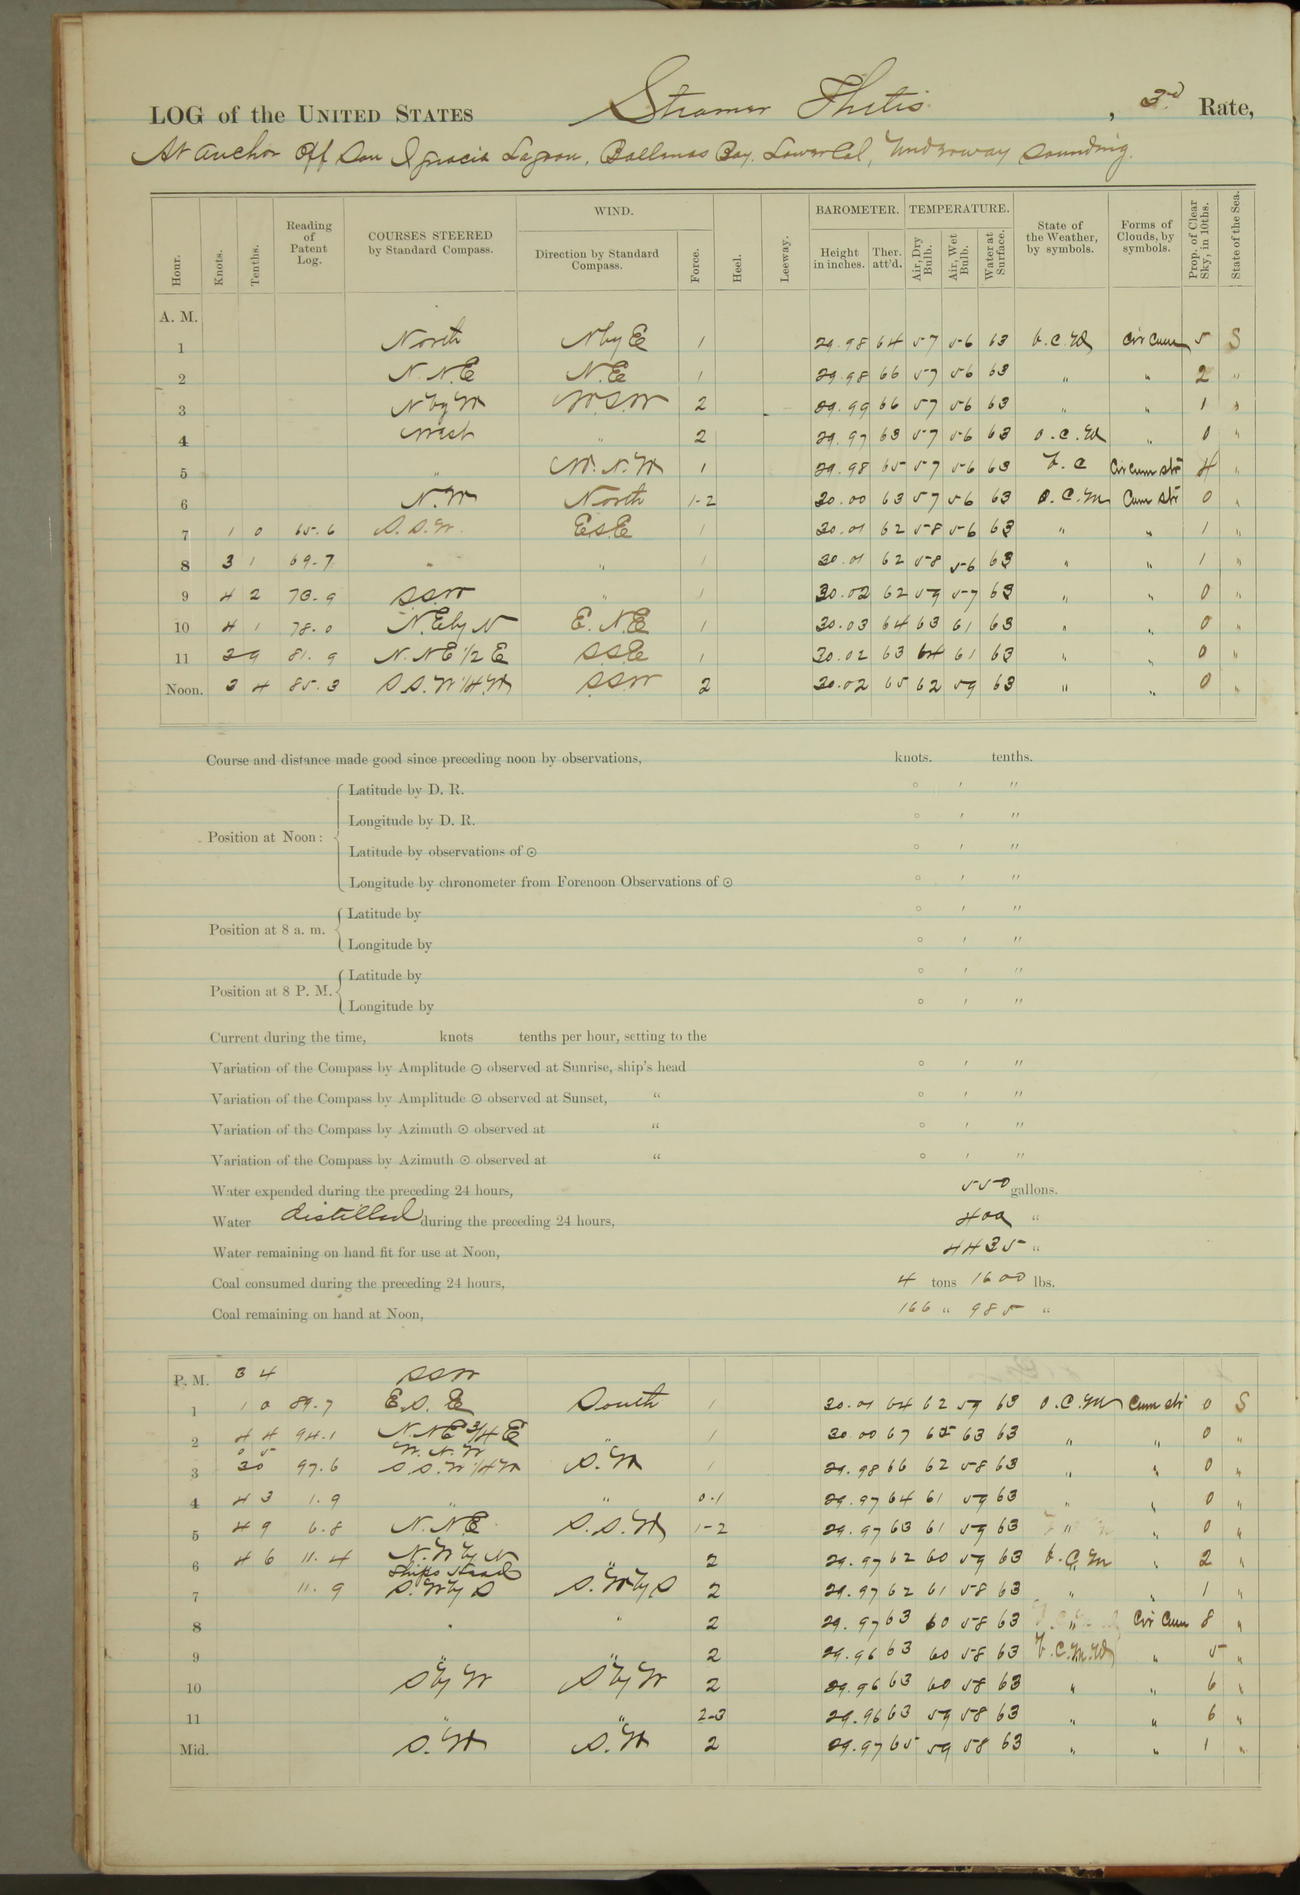 LOG of the UNITED STATES Steamer Thetis, 3rd Rate,
At anchor Off San Ignacio Lagoon, Ballenas Bay, Lower Cal, Underway sounding.
Hour. Knots. Tenths. Reading of Patent Log. COURSES STEERED by Standard Compass. WIND. Direction by Standard Compass. Force. Heel. Leeway. BAROMETER. Height in inches. Ther. att'd. TEMPERATURE. Air, Dry Bulb. Air, Wet Bulb. Water at Surface. State of the Weather, by symbols. Forms of Clouds, by symbols. Prop. of Clear Sky, in 10ths. State of the Sea.
A. M.
1 North N by E 1 29.98 64 57 56 63 b.c.w Cir Cum 5 S
2 N.N.E N.E 1 29.98 66 57 56 63 " " 2 "
3 N by W W.S.W 2 29.99 66 57 56 63 " " 1 "
4 West " 2 29.97 63 57 56 63 o.c.w " 0 "
5 " W.N.W 1 29.98 65 57 56 63 b.c Cir cum str 4 "
6 N.W North 1-2 30.00 63 57 56 63 o.c.m Cum str 0 "
7 1 0 65.6 S.S.W. E.S.E 1 30.01 62 58 56 63 " " 1 "
8 3 1 69.7 " " 1 30.01 62 58 56 63 " " 1 "
9 4 2 73.9 SSW " 1 30.02 62 59 57 63 " " 0 "
10 4 1 78.0 N.E by N E.N.E 1 30.03 64 63 61 63 " " 0 "
11 3 9 81.9 N.NE 1/2 E SSE 1 30.02 63 64 61 63 " " 0 "
Noon. 3 4 85.3 S.S.W 1/4 W SSW 2 30.02 65 62 59 63 " " 0 "
Course and distance made good since preceding noon by observations, knots. tenths.
Position at Noon: Latitude by D. R. ° ′ ″
Longitude by D. R. ° ′ ″
Latitude by observations of ⊙ ° ′ ″
Longitude by chronometer from Forenoon Observations of ⊙ ° ′ ″
Position at 8 a. m. Latitude by ° ′ ″
Longitude by ° ′ ″
Position at 8 P. M. Latitude by ° ′ ″
Longitude by ° ′ ″
Current during the time, knots tenths per hour, setting to the
Variation of the Compass by Amplitude ⊙ observed at Sunrise, ship's head ° ′ ″
Variation of the Compass by Amplitude ⊙ observed at Sunset, " ° ′ ″
Variation of the Compass by Azimuth ⊙ observed at " ° ′ ″
Variation of the Compass by Azimuth ⊙ observed at " ° ′ ″
Water expended during the preceding 24 hours, 550 gallons.
Water distilled during the preceding 24 hours, 400 "
Water remaining on hand fit for use at Noon, 4435 "
Coal consumed during the preceding 24 hours, 4 tons 1600 lbs.
Coal remaining on hand at Noon, 166 " 985 "
P. M. 3 4 SSW
1 1 0 89.7 E.S.E South 1 30.01 64 62 59 63 o.c.m Cum str 0 S
2 4 4 94.1 N.NE 3/4 E " 1 30.00 67 65 63 63 " " 0 "
0 5 W.N.W
3 3 0 97.6 S.S.W 1/4 W S.W 1 29.98 66 62 58 63 " " 0 "
4 4 3 1.9 " " 0-1 29.97 64 61 59 63 " " 0 "
5 4 9 6.8 N.N.E S.S.W 1-2 29.97 63 61 59 63 " " 0 "
6 4 6 11.4 N.W by N " 2 29.97 62 60 59 63 b.c.m " 2 "
Ships Head
7 11.9 S.W by S S.W by S 2 29.97 62 61 58 63 " " 1 "
8 " " 2 29.97 63 60 58 63 " Cir Cum 8 "
9 " " 2 29.96 63 60 58 63 b.c.m.w " 5 "
10 S by W S by W 2 29.96 63 60 58 63 " " 6 "
11 " " 2-3 29.96 63 59 58 63 " " 6 "
Mid. S.W S.W 2 29.97 65 59 58 63 " " 1 "